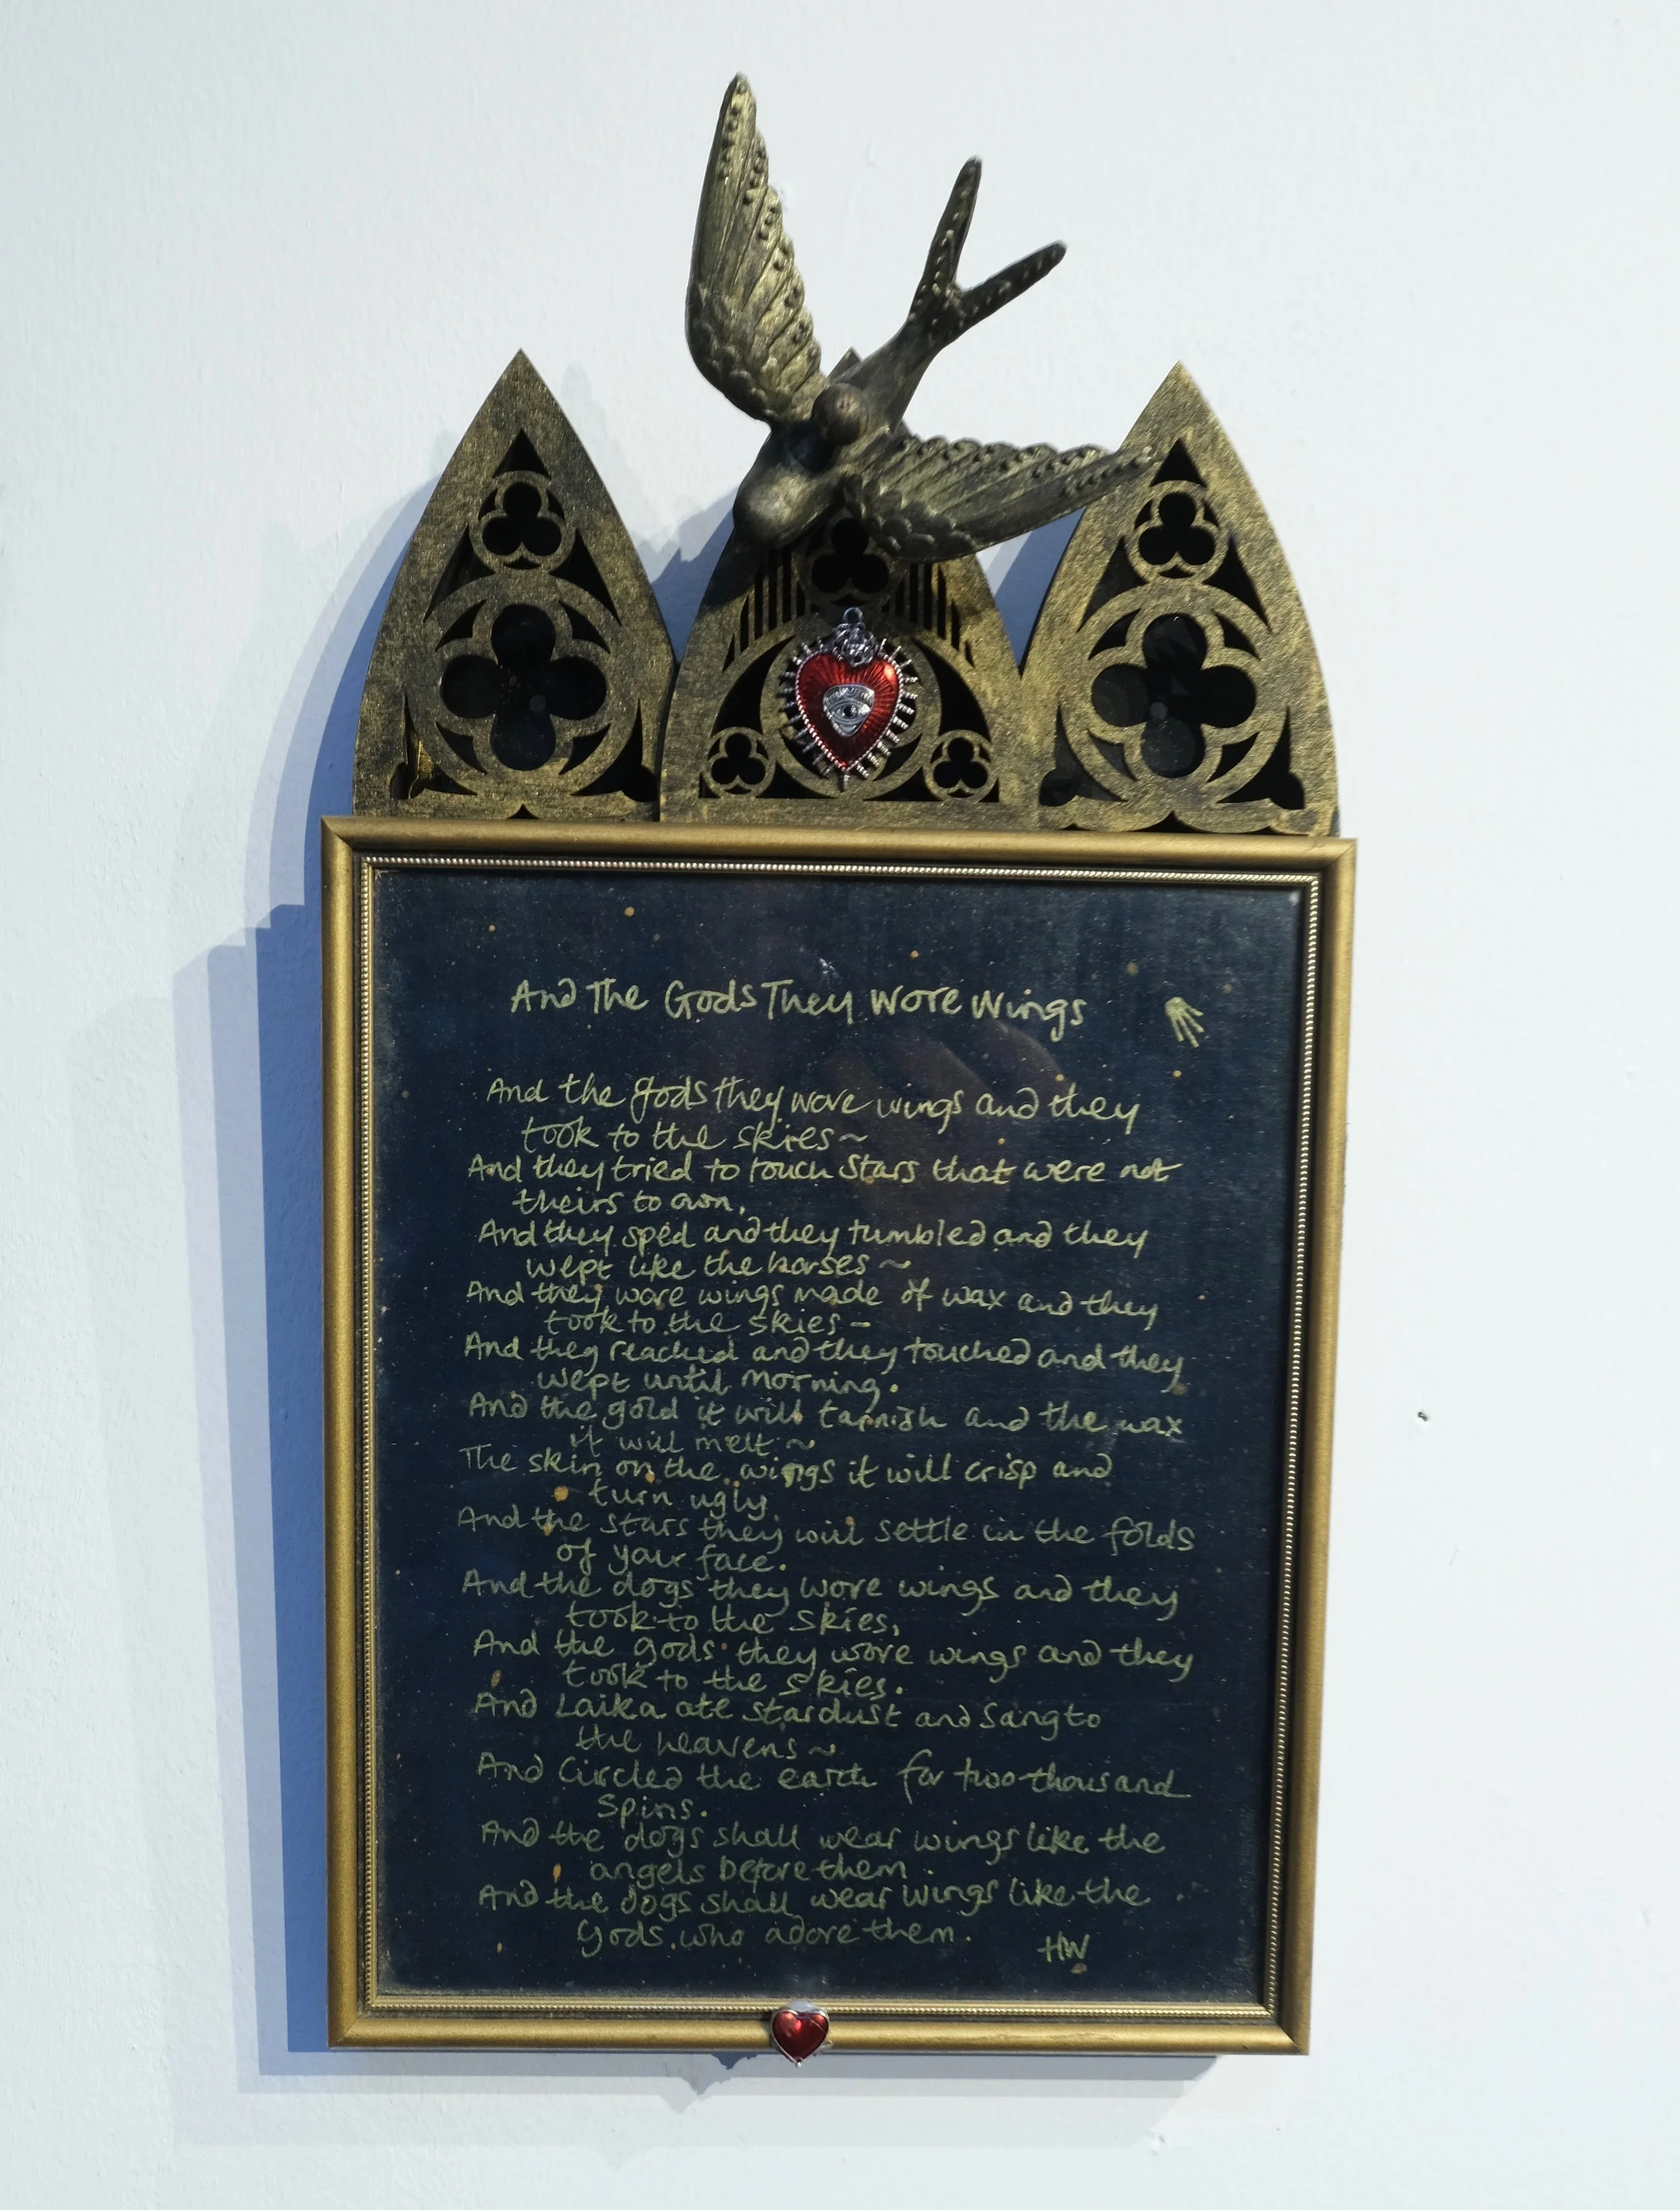 And The Gods They Wore Wings
And the gods they wore wings and they
took to the skies~
And they tried to touch stars that were not
theirs to own,
And they sped and they tumbled and they
wept like the horses~
And they wore wings made of wax and they
took to the skies-
And they reached and they touched and they
wept until morning.
And the gold it will tarnish and the wax
it will melt~
The skin on the wings it will crisp and
turn ugly
And the stars they will settle in the folds
of your face.
And the dogs they wore wings and they
took to the skies,
And the gods they wore wings and they
took to the skies.
And Laika ate stardust and sang to
the heavens~
And Circled the earth for two thousand
Spins.
And the dogs shall wear wings like the
angels before them.
And the dogs shall wear wings like the
gods who adore them.
HW